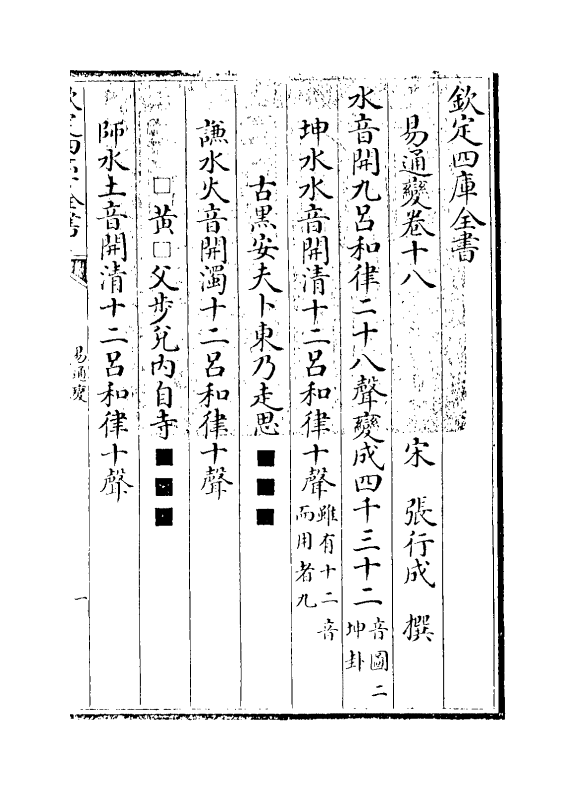 欽定四庫全書
易通變卷十八
宋 張行成 撰
水音開九呂和律二十八聲變成四千三十二音圖二坤卦
坤水水音開清十二呂和律十聲雖有十二音而用者九
古黑安夫卜東乃走思■■■
謙水火音開濁十二呂和律十聲
□黄□父步兌內自寺■■■
師水土音開清十二呂和律十聲
欽定四庫全書
易通變
一